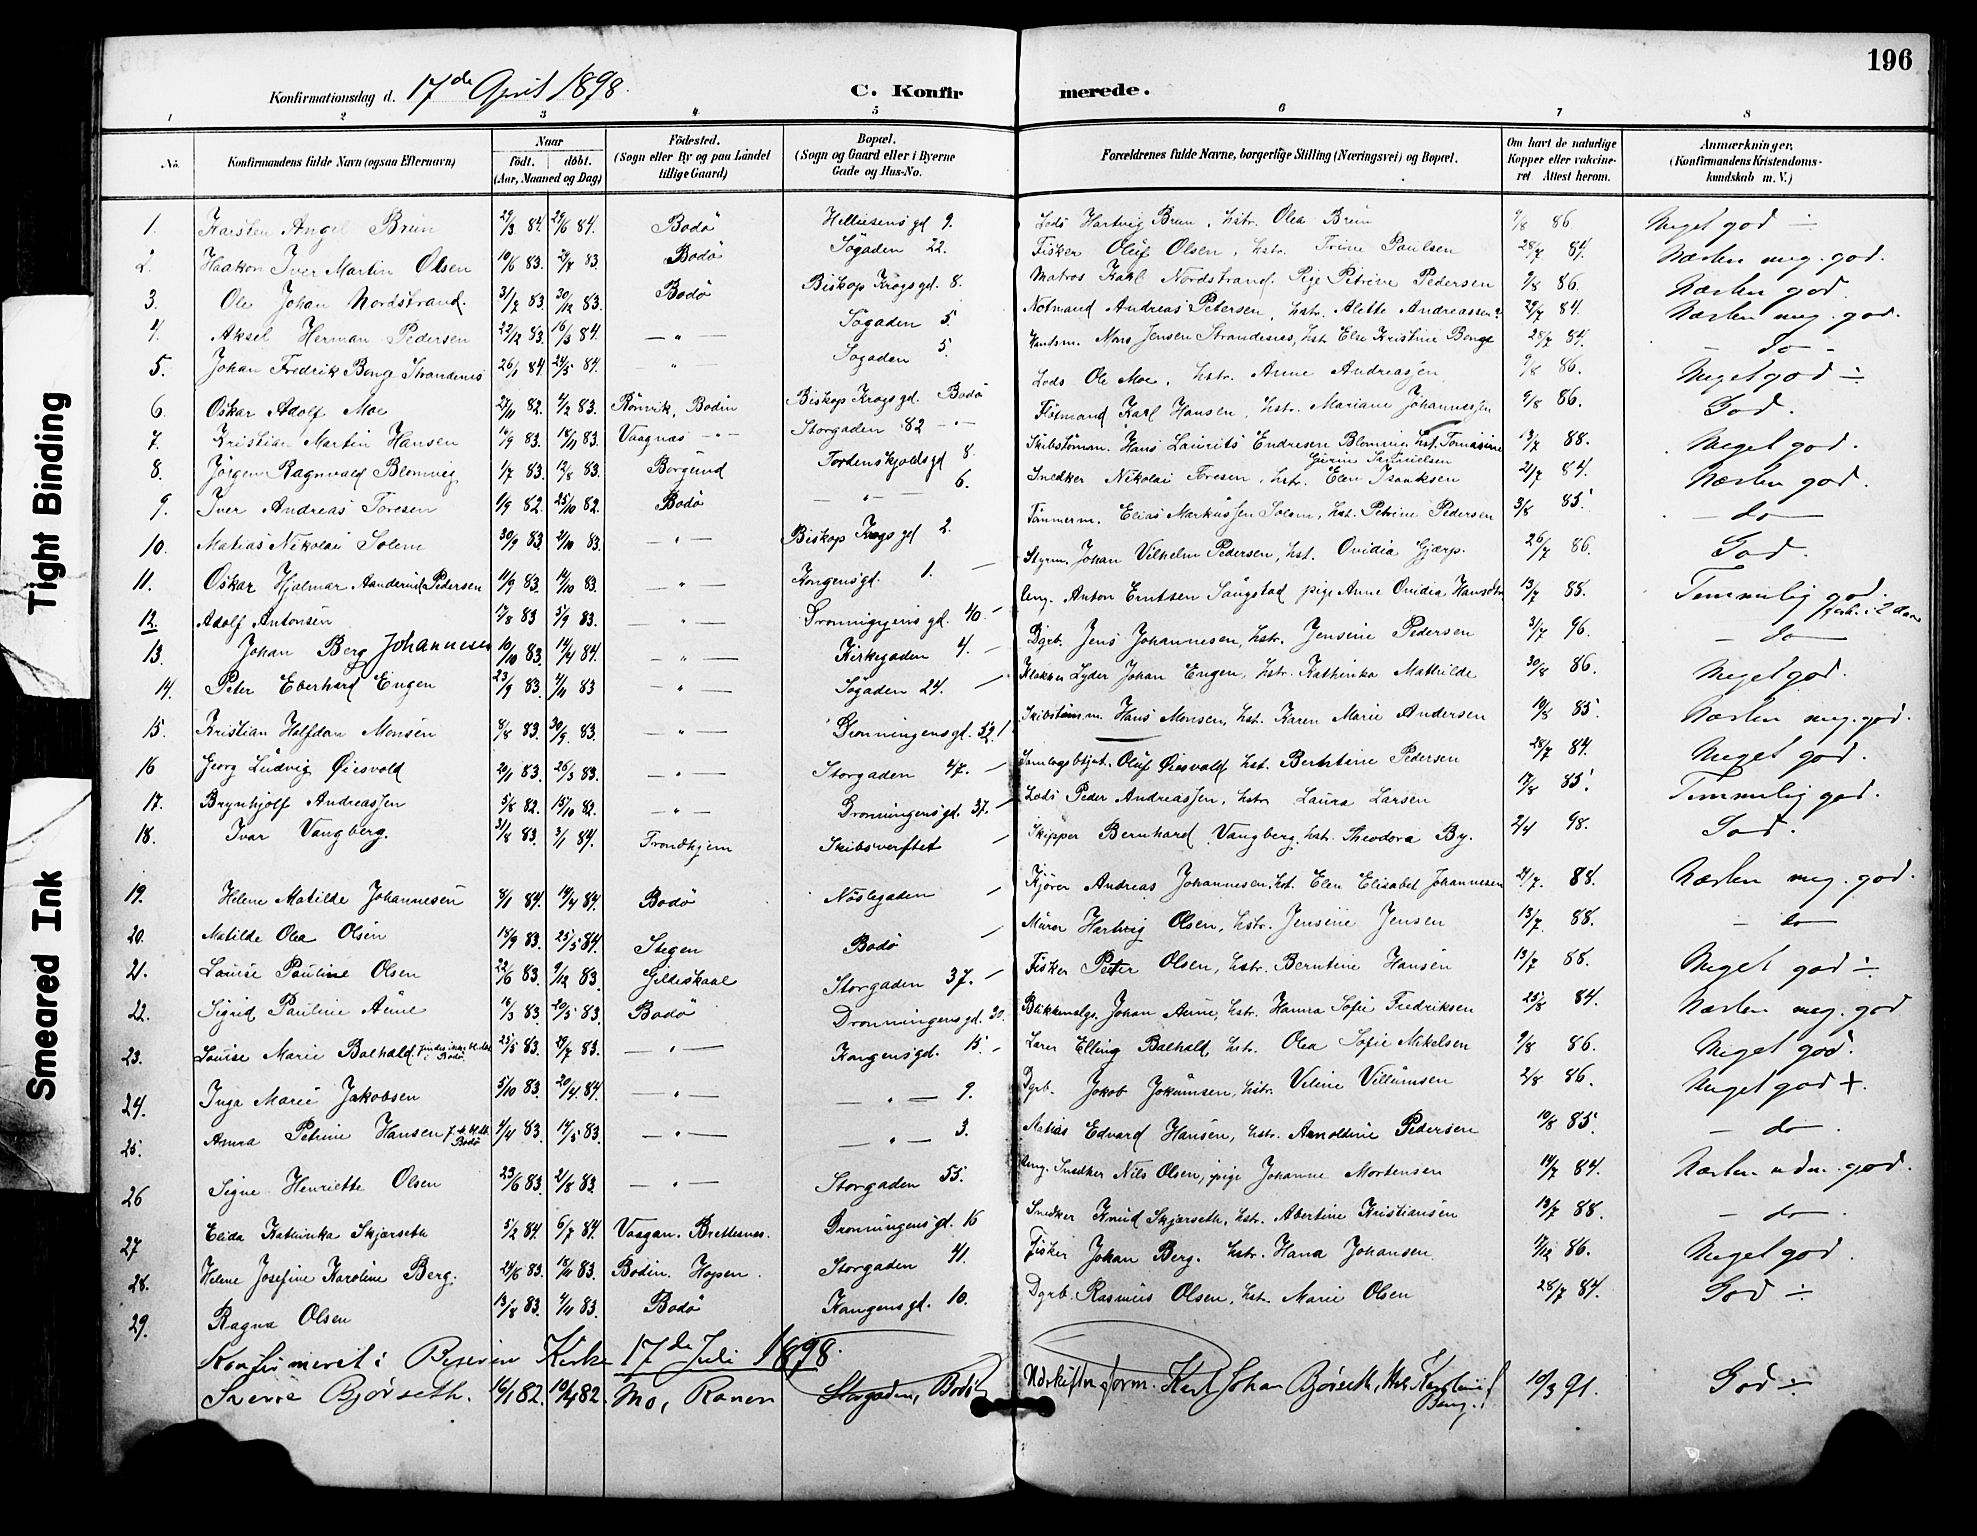 196
Konfirmationsdag d. 17de April 1898.
C. Konfirmerede.
1 2 3 4 5 6 7 8
No.
Konfirmandens fulde Navn (ogsaa Efternavn)
Naar
födt. döbt.
(Aar, Maaned og Dag)
Födested.
(Sogn eller By og paa Landet
tillige Gaard)
Bopæl.
(Sogn og Gaard eller i Byerne
Gade og Hus-No.
Forældrenes fulde Navne, borgerlige Stilling (Næringsvei) og Bopæl.
Om havt de naturlige
Kopper eller vakcine-
ret Attest herom.
Anmærkninger,
(Konfirmandens Kristendoms-
kundskab m. V.)
1. Karsten Angel Brun 29/3 84. 29/6 84. Bodö Hellusensgd 9. Lods Hartvig Brun, hstr. Olea Brun 9/8 86 Meget god ÷
2. Haakon Iver Martin Olsen 10/6 83. 29/7 83. Bodö Sögaden 22. Fisker Oluf Olsen, hstr. Trine Paulsen 28/7 84. Næsten meg. god.
3. Ole Johan Nordstrand. 31/7 83. 30/12 83. Bodö Biskop Krogsgd. 8. Matros Karl Nordstrand. Pige Petrine Pedersen 9/8 86. Næsten god.
4. Aksel Herman Pedersen 22/12 83. 16/3 84. — " — Sögaden 5. Notmand Andreas Petersen, hstr. Alette Andreassen 29/7 84. Næsten meg. god.
5. Johan Fredrik Bonge Strandenes 26/1 84. 24/5 84. — " — Sögaden 5. Mons Jensen Strandenes, hst. Else Kristine Bonge 28/7 84. — do —
6. Oskar Adolf Moe 27/11 82. 4/2 83. Rönvik, Bodin Biskop Krogsgd. Bodö Lods Ole Moe, hstr. Anne Andreasjen 9/8 86. Meget god ÷
7. Kristian Martin Hansen 16/9 83. 18/11 83. Vaagnæs — " — Storgaden 82 — " — Karl Hansen, hstr. Mariane Johannesjen 9/8 86. God.
8. Jörgen Ragnvald Blomvig 1/7 83. 12/8 83. Borgund Tordenskjoldsgd 8. Skibstömm. Hans Laurits Endresen Blomvig, hst. Tomasine Gurine Samuelsen 13/7 88. Meget god.
9. Iver Andreas Toresen 1/9 82. 25/10 82. Bodö — " — 6. Snedker Nikolai Toresen, hstr. Elen Isaaksen 21/7 84. Næsten god.
10. Matias Nikolai Solem 30/9 83. 2/10 83. — " — Biskop Krogsgd 2. Tömmerm. Elias Markusjen Solem, hst. Petrine Pedersen 3/8 85. — do —
11. Oskar Hjalmar Pedersen 11/9 83. 14/10 83. — " — Kongensgd. 1. — Styrm. Johan Vilhelm Pedersen, hst. Ovidia Gjærp. 26/7 86. God.
12. Adolf Antonsen 17/8 83 5/9 83. — " — Dronningensgd. 40. — Ung. Anton Erntsen Saugstad pige Anne Ovidia Hansdtr 13/7 88. Temmelig god.
13. Johan Berg Johannesen 10/10 83. 14/4 84. — " — Kirkegaden 4. — Dgrb. Jens Johannesen, hstr. Jensine Pedersen 3/7 96. — do —
14. Peter Eberhard Engen 23/9 83. 4/11 83 — " — Sögaden 24. — Klokker Lyder Johan Engen, hstr. Kathinka Mathilde 30/8 86. Meget god.
15. Kristian Halfdan Monsen 8/8 83. 30/9 83. — " — Dronningensgd. 32. Skibstömm. Hans Monsen, hst. Karen Marie Andersen 19/8 85. Næsten meg. god.
16 Georg Ludvig Öiesvold 20/1 83. 26/3 83. — " — Storgaden 47. — Oluf Öiesvold hst. Berntine Pedersen 28/7 84. Meget god.
17. Brynhjolf Andreasjen 5/8 82. 15/10 82. — " — Dronningensgd. 37. — Lods Peder Andreasjen, hstr Laura Larsen 17/8 85. Temmelig god.
18. Ivar Vangberg. 31/8 83. 3/1 84. Trondhjem Skibsverftet — Skipper Bernhard Vangberg, hst. Theodora By. 2/4 98. God.
19. Helene Matilde Johannesen 8/1 84. 14/4 84. Bodö — Kjörer Andreas Johannesen, hst. Elen Elisabet Johannesen 21/7. 84. Næsten meg. god.
20. Matilde Olea Olsen 18/9 83. 25/5 84. Stegen Bodö — Murer Hartvig Olsen, hstr. Jensine Jensen 13/7 88. — do —
21. Louise Pauline Olsen 22/6 83. 9/12 83. Gildeskaal Storgaden 37. — Fisker Peter Olsen, hstr. Berntine Hansen 13/7 88. Meget god ÷
22. Sigrid Pauline Aune 16/3 83. 20/5 83. Bodö Dronningensgd. 30. Johan Aune, hstr. Hanna Sofie Fredriksen 25/8 84. Næsten meg. god
23. Louise Marie Balhald 25/5 83. 29/7 83. — " — Kongensgd. 15. — Lærer Elling Balhald, hstr. Olea Sofie Mikelsen 9/8 86. Meget god.
24. Inga Marie Jakobsen 5/10 83. 20/4 84. — " — — " — 9. Dgrb. Jakob Jokumsen, hstr. Veline Villumsen 2/8 86. Meget god +.
25. Anna Petrine Hansen 4/4 83. 14/5 83. — " — — " — 3. Matias Edvard Hansen, hstr. Arnoldine Pedersen 10/8 85. — do —.
26 Signe Henriette Olsen 23/6 83. 2/8 83. — " — Storgaden 55. Ung. Snedker Nils Olsen, pige Johanne Mortensen 14/7 84. Næsten god.
27 Elida Kathinka Skjærseth 5/2 84. 6/7 84. Vaagan. Brettesnes. Dronningensgd. 16 Snedker Knud Skjærseth, hstr. Abertine Kristiansen 13/7 88. — do —.
28. Helene Josefine Karoline Berg. 24/6 83. 18/11 83. Bodin. Hopen. Storgaden 41. Fisker Johan Berg. hstr. Hana Johansen. 4/12 86. Meget god.
29. Ragna Olsen 13/8 83. 4/11 83. Bodö Kongensgd. 10. Dgrb. Rasmus Olsen, hst. Marie Olsen 28/7 84. God ÷
Konfirmeret i Kirke 17de Juli 1898.
Sverre Bjørseth. 16/1 82. 10/4 82. Mo, Ranen Storgaden, Bodö Karl Johan Bjørseth, Karoline Berg. 10/3 91. God ÷
Tight Binding
Smeared Ink